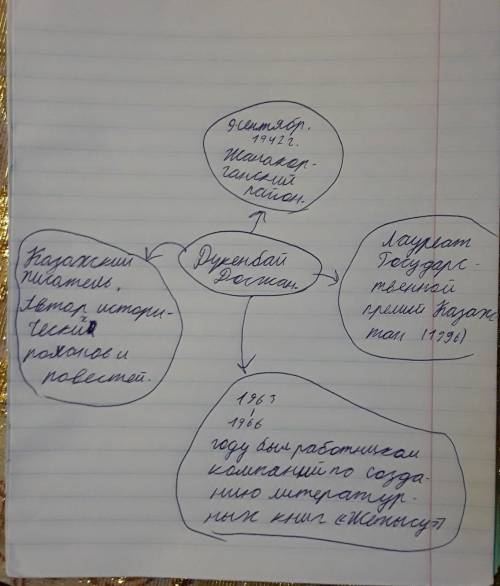 9 сентябр.
1942 г.
Жанакор-
ганский
район.
Дукенбай
Досжан.
Казахский
писатель.
Автор истори-
ческий
романов и
повестей.
Лауреат
Государс-
твенной
премии Казахс
тан (1996)
1963
1966
году был работником
компаний по созда-
нию литератур-
ных книг («Жетысу»)